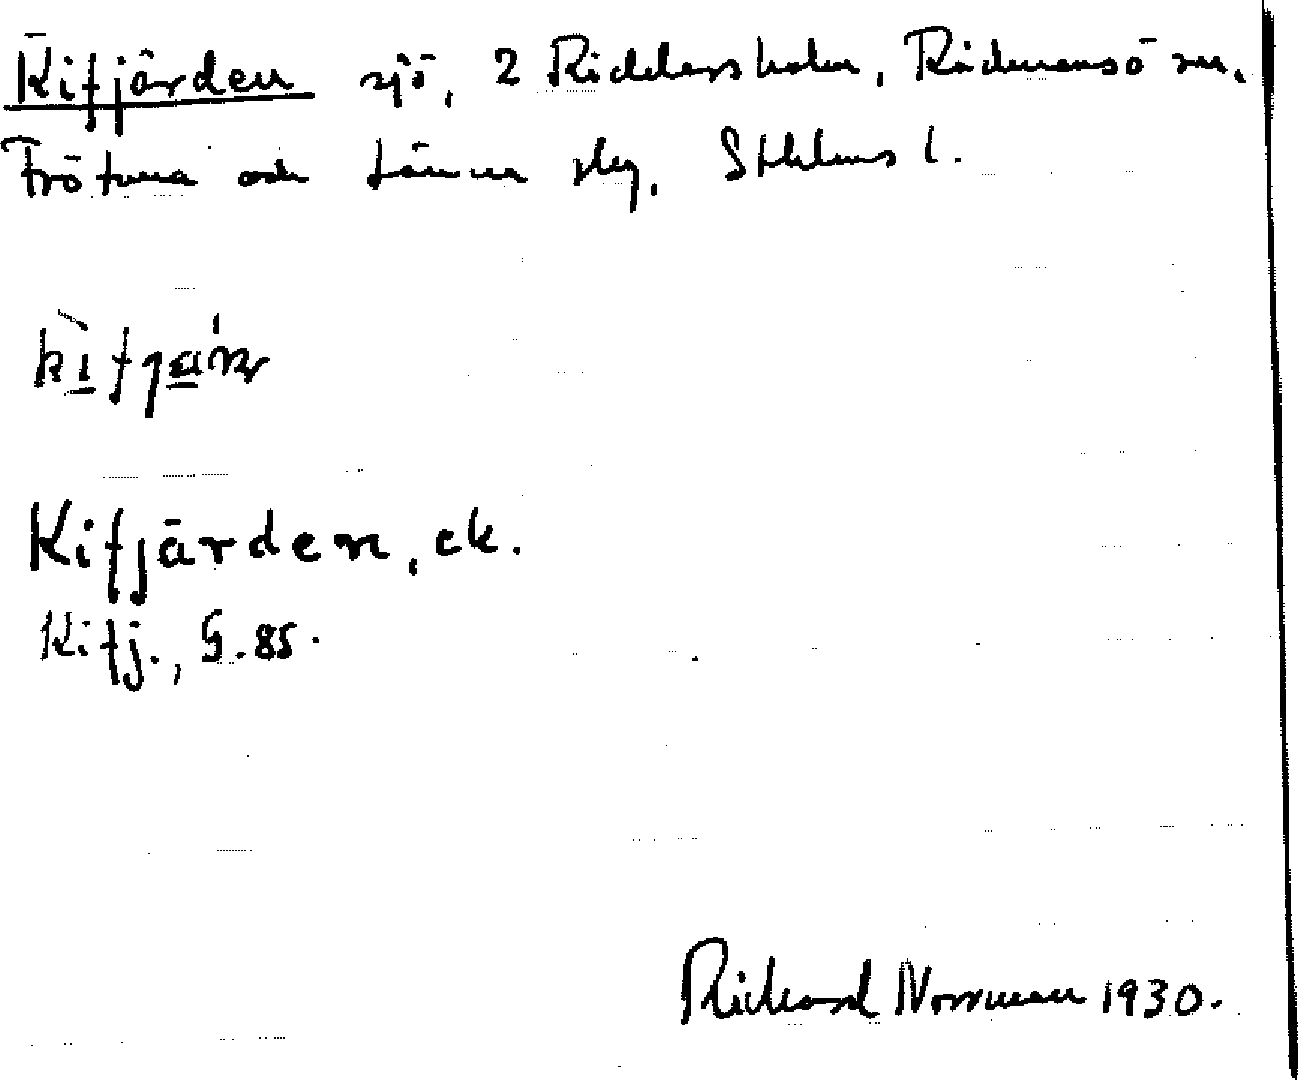 Kifjärden sjö, 2 Riddersholm, Rådmansö sn.
Frötuna och Länna skg. Sthlms l.
Kifjärden, ek.
Kifj., G. 85.
Rickard Norrman 1930.